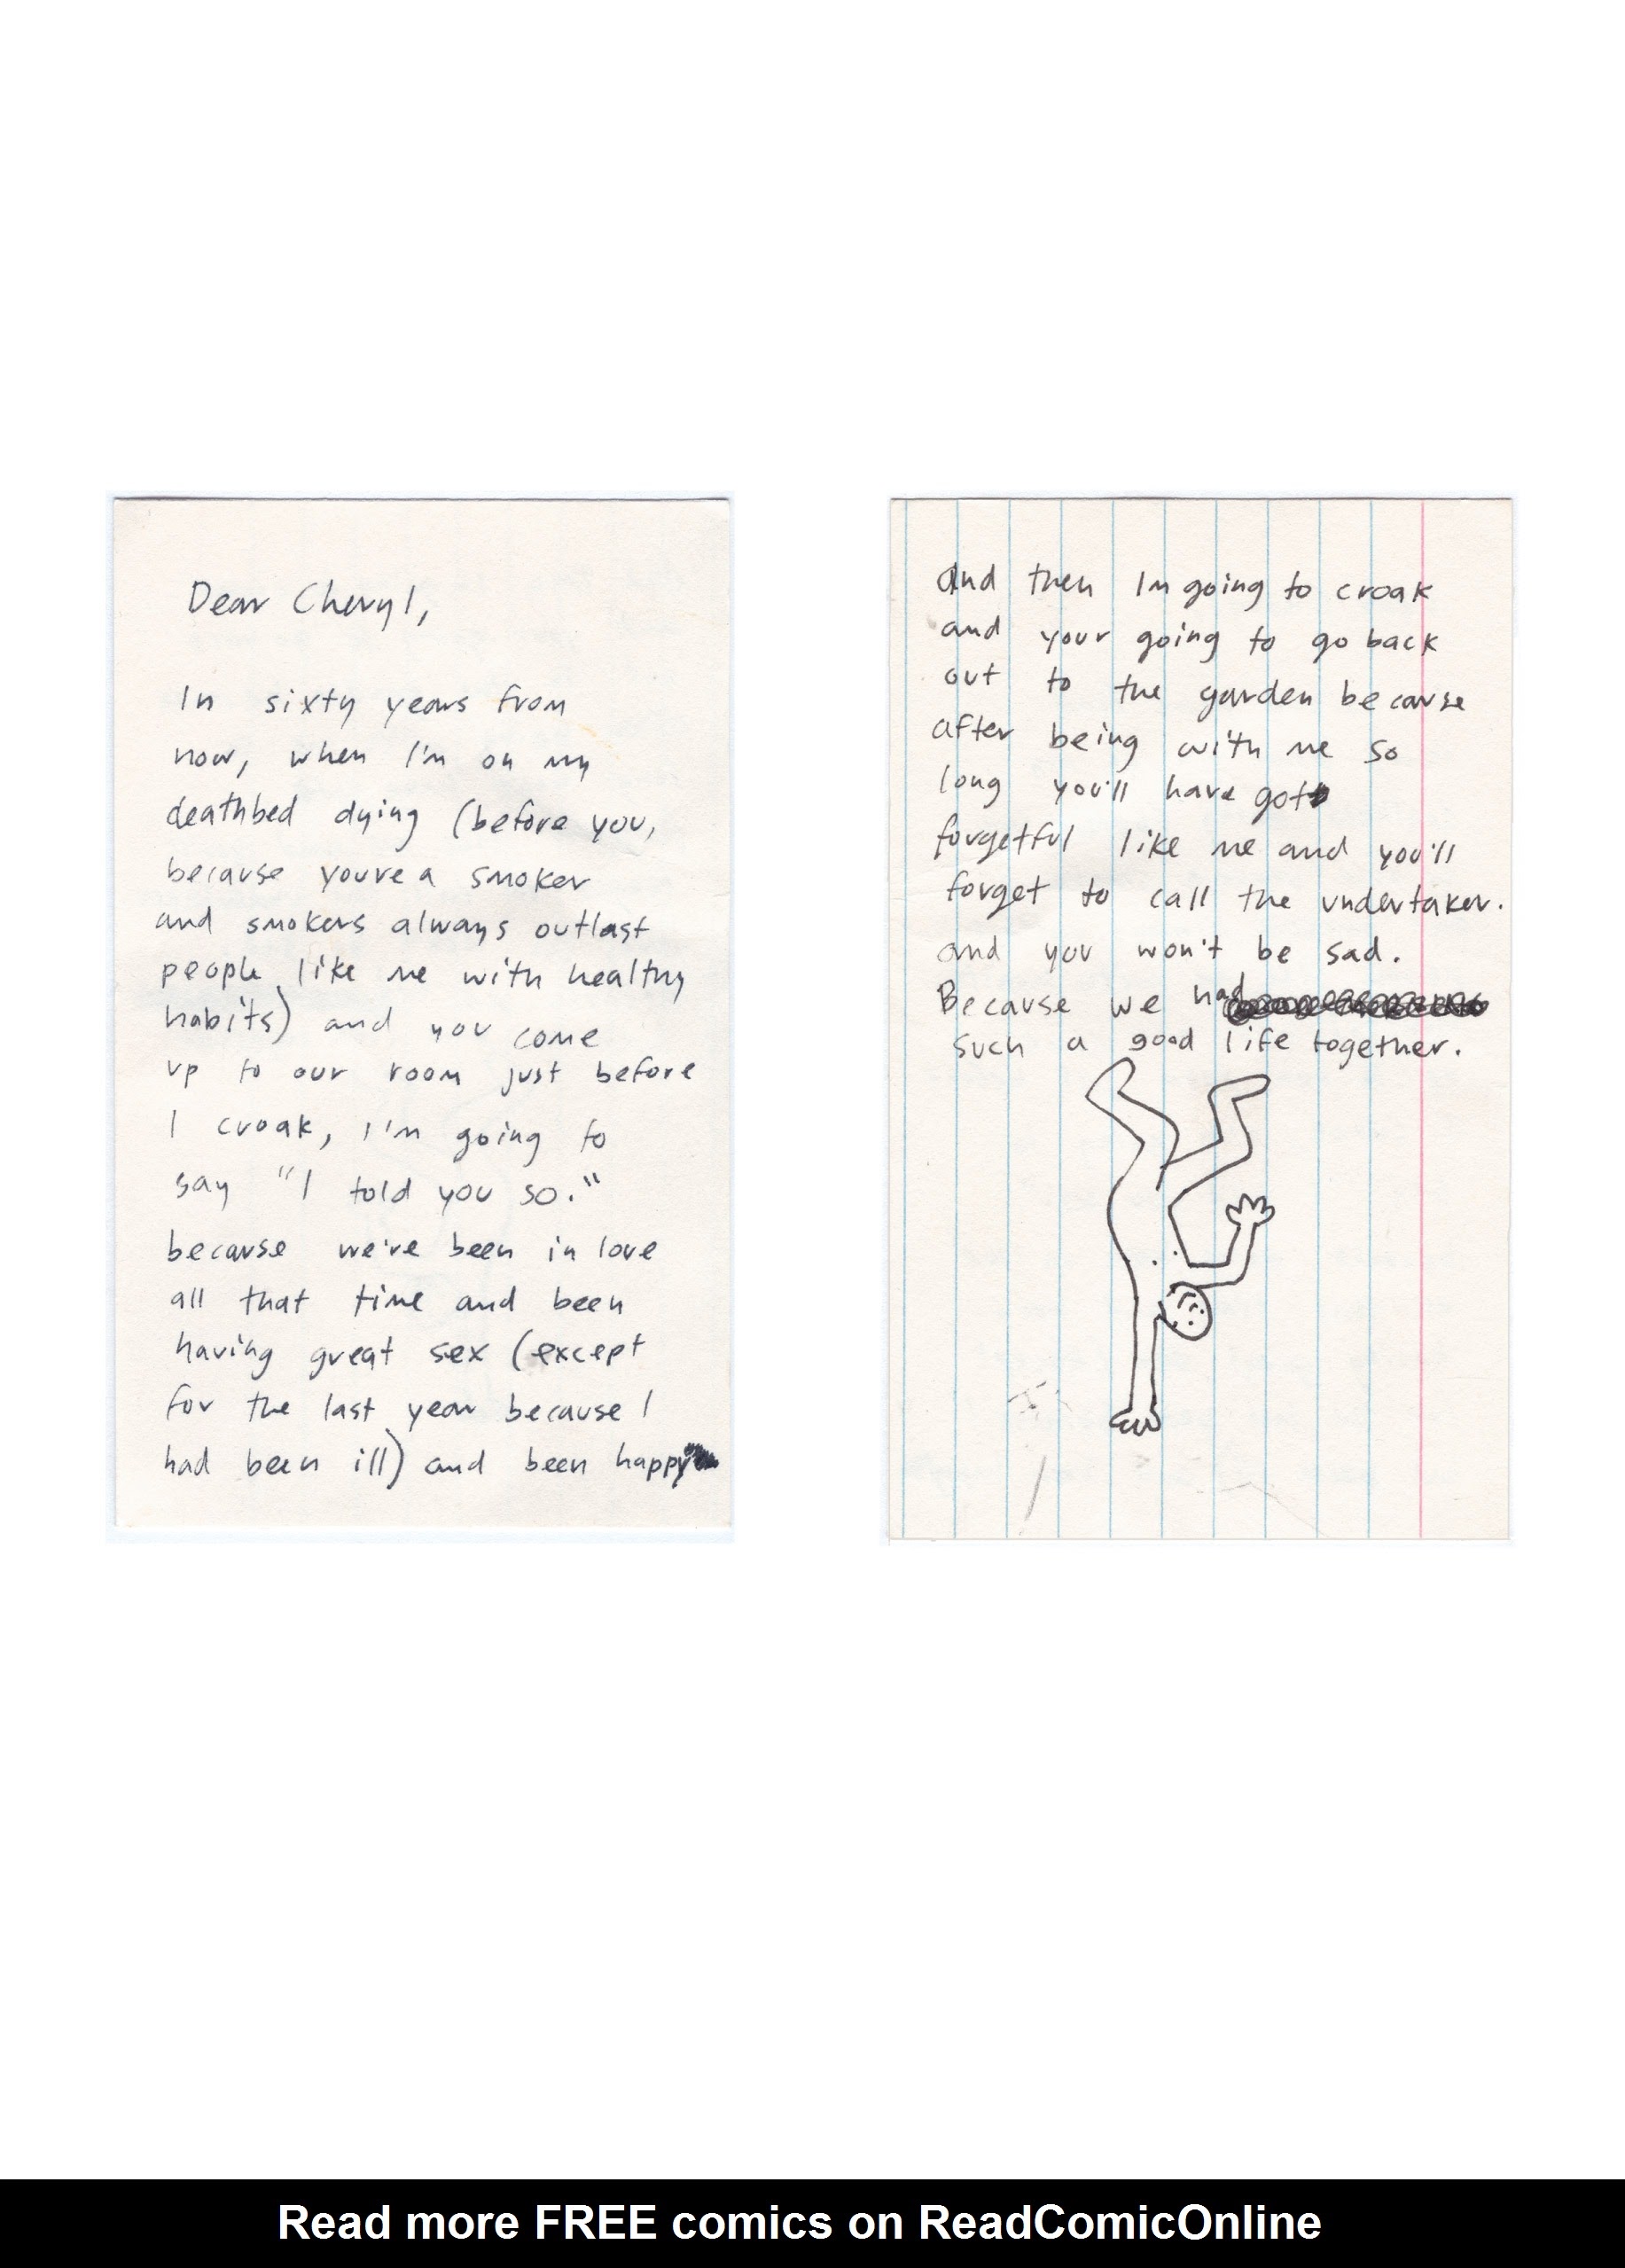 Dear Cheryl,
In sixty years from
now, when I'm on my
deathbed dying (before you,
because youre a smoker
and smokers always outlast
people like me with healthy
habits) and you come
up to our room just before
I croak, I'm going to
say "I told you so."
because we've been in love
all that time and been
having great sex (except
for the last year because I
had been ill) and been happy
And then Im going to croak
and your going to go back
out to the garden because
after being with me so
long you'll have got
forgetful like me and you'll
forget to call the undertaker.
and you won't be sad.
Because we had
such a good life together.
Read more FREE comics on ReadComicOnline